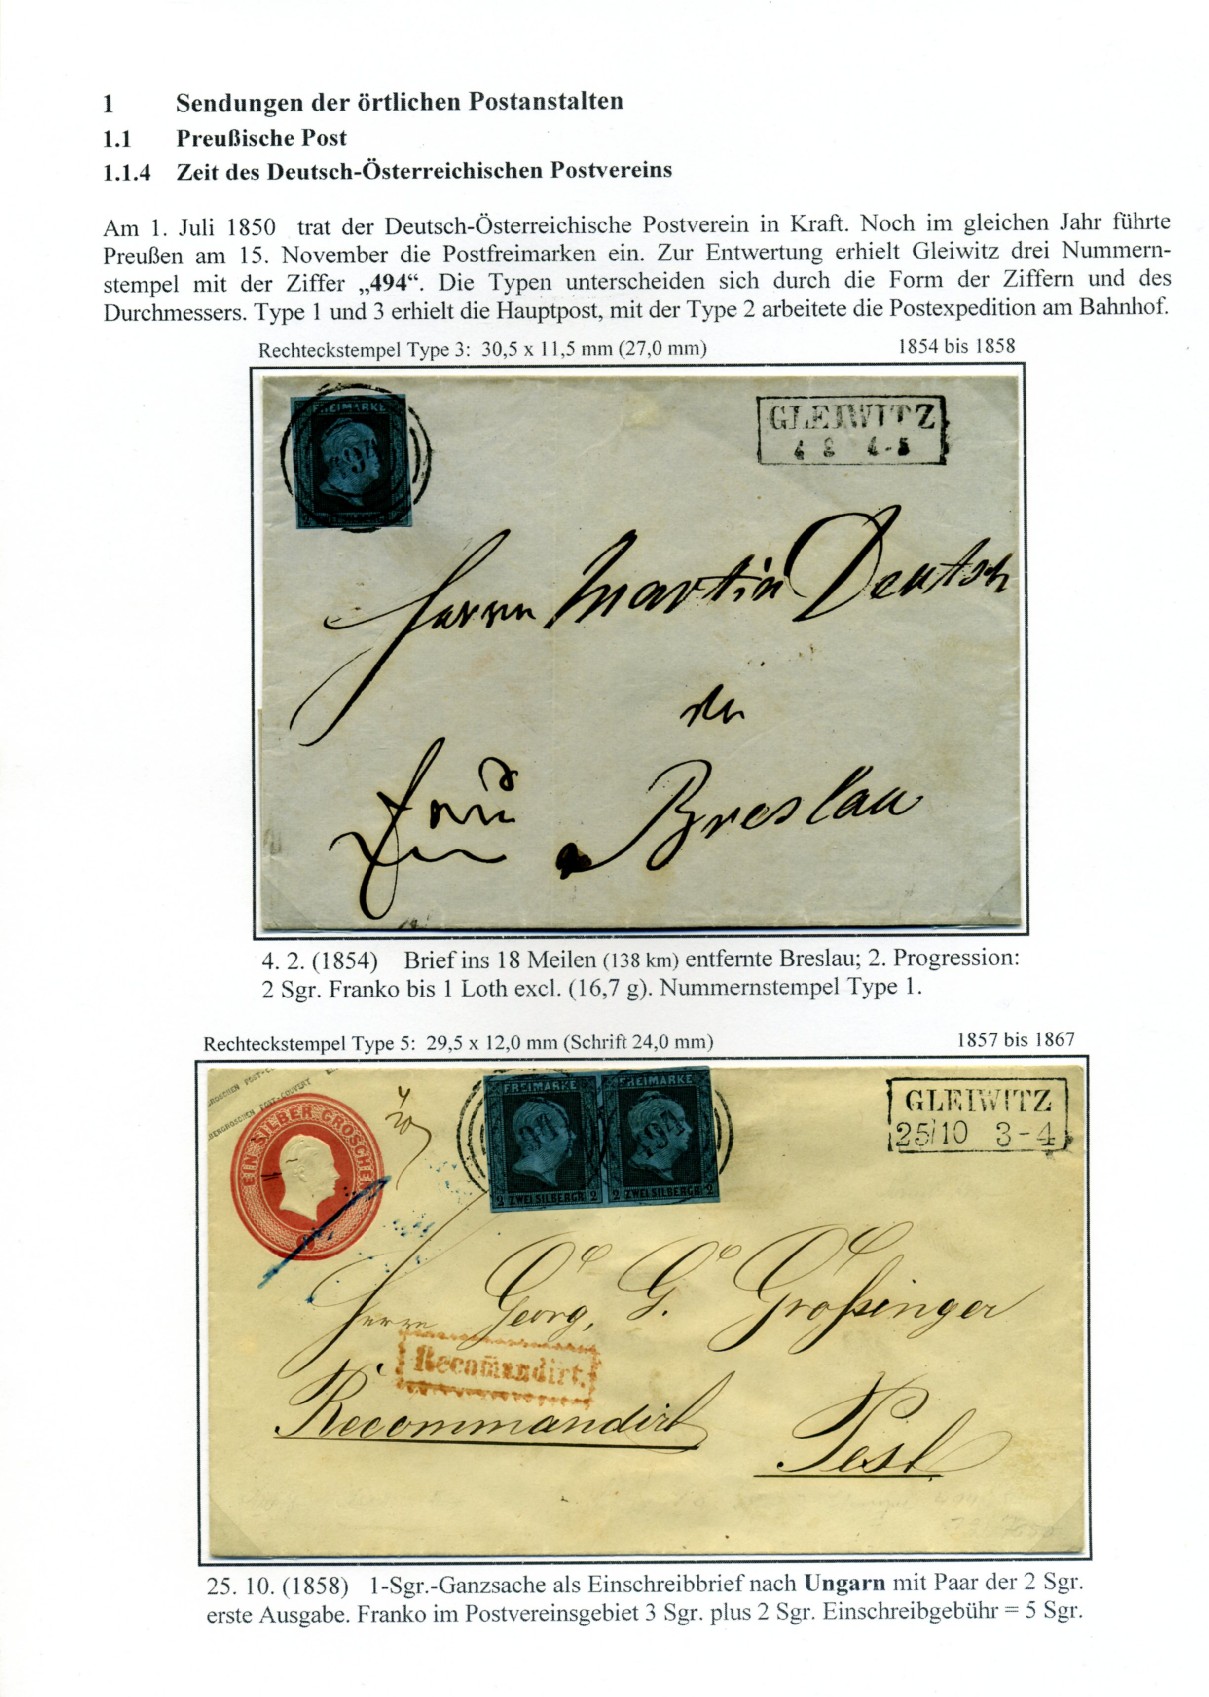 1 Sendungen der örtlichen Postanstalten
1.1 Preußische Post
1.1.4 Zeit des Deutsch-Österreichischen Postvereins
Am 1. Juli 1850 trat der Deutsch-Österreichische Postverein in Kraft. Noch im gleichen Jahr führte
Preußen am 15. November die Postfreimarken ein. Zur Entwertung erhielt Gleiwitz drei Nummern-
stempel mit der Ziffer „494“. Die Typen unterscheiden sich durch die Form der Ziffern und des
Durchmessers. Type 1 und 3 erhielt die Hauptpost, mit der Type 2 arbeitete die Postexpedition am Bahnhof.
Rechteckstempel Type 3: 30,5 x 11,5 mm (27,0 mm) 1854 bis 1858
FREIMARKE
494
GLEIWITZ
4 2 4-5
Herrn Martin Deutsch
in
Breslau
4. 2. (1854) Brief ins 18 Meilen (138 km) entfernte Breslau; 2. Progression:
2 Sgr. Franko bis 1 Loth excl. (16,7 g). Nummernstempel Type 1.
Rechteckstempel Type 5: 29,5 x 12,0 mm (Schrift 24,0 mm) 1857 bis 1867
EIN SILBER GROSCHEN
FREIMARKE FREIMARKE
494 494
2 ZWEI SILBERGR 2 2 ZWEI SILBERGR 2
GLEIWITZ
25/10 3-4
Herrn Georg. G. Großinger
Recom̄andirt.
Recommandirt
Pest
25. 10. (1858) 1-Sgr.-Ganzsache als Einschreibbrief nach Ungarn mit Paar der 2 Sgr.
erste Ausgabe. Franko im Postvereinsgebiet 3 Sgr. plus 2 Sgr. Einschreibgebühr = 5 Sgr.